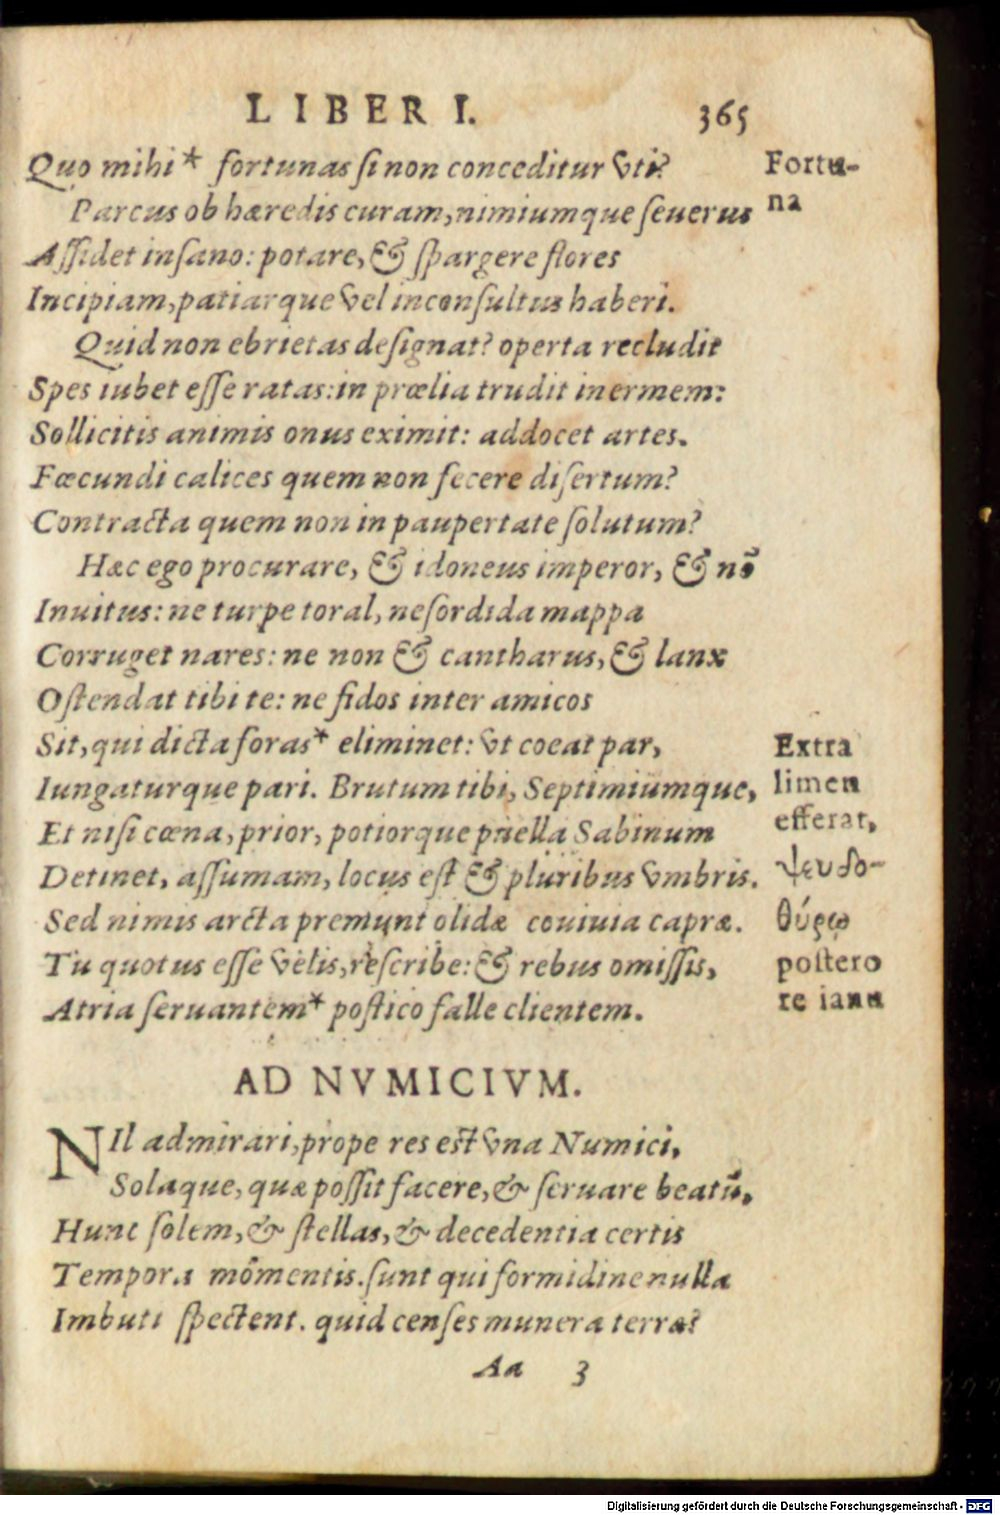 LIBER I. 365
Quo mihi* fortunas si non conceditur vti?
Parcus ob hæredis curam, nimiumque seuerus
Assidet insano: potare, & spargere flores
Incipiam, patiarque vel inconsultus haberi.
Quid non ebrietas designat? operta recludit
Spes iubet esse ratas: in prœlia trudit inermem:
Sollicitis animis onus eximit: addocet artes.
Fœcundi calices quem non fecere disertum?
Contracta quem non in paupertate solutum?
Hæc ego procurare, & idoneus imperor, & nõ
Inuitus: ne turpe toral, ne sordida mappa
Corruget nares: ne non & cantharus, & lanx
Ostendat tibi te: ne fidos inter amicos
Sit, qui dicta foras* eliminet: vt coeat par,
Iungaturque pari. Brutum tibi, Septimiumque,
Et nisi cœna, prior, potiorque puella Sabinum
Detinet, assumam, locus est & pluribus vmbris.
Sed nimis arcta premunt olidæ conuiuia capræ.
Tu quotus esse velis, rescribe: & rebus omissis,
Atria seruantem* postico falle clientem.
Fortu-
na
Extra
limen
efferat,
ψευδο-
θύρῳ
postero
re ianu
AD NVMICIVM.
NIl admirari, prope res est vna Numici,
Solaque, quæ possit facere, & seruare beatũ.
Hunc solem, & stellas, & decedentia certis
Tempora momentis. sunt qui formidine nulla
Imbuti spectent. quid censes munera terræ?
Aa 3
Digitalisierung gefördert durch die Deutsche Forschungsgemeinschaft - DFG